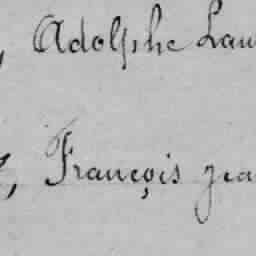 , Adolphe Lau
, François jea